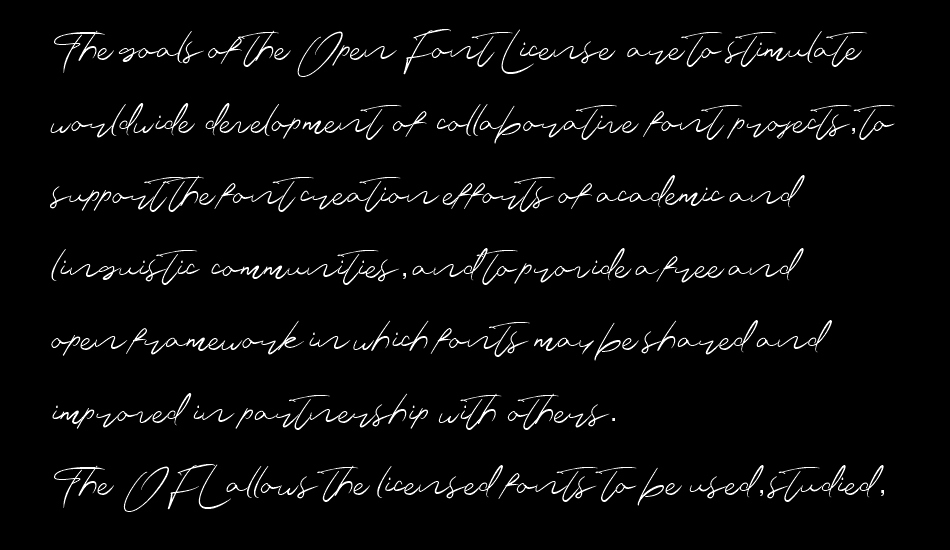 The goals of the Open Font License are to stimulate
worldwide development of collaborative font projects, to
support the font creation efforts of academic and
linguistic communities, and to provide a free and
open framework in which fonts may be shared and
improved in partnership with others.
The OFL allows the licensed fonts to be used, studied,